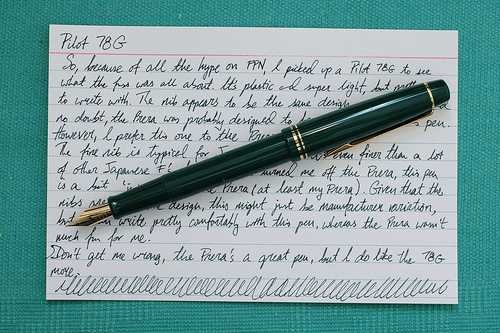 Pilot 78G
So, because of all the hype on FPN, I picked up a Pilot 78G to see
what the fuss was all about. It's plastic and super light, but
to write with. The nib appears to be the same design
no doubt, the Prera was probably designed to pen.
However, I prefer this one to the Prera
The fine nib is typical for even finer than a lot
of other Japanese turned me off the Prera, this pen
is a bit Prera (at least my Prera). Given that the
nibs are design, this might just be manufacturer variation,
but write pretty comfortably with this pen, whereas the Prera wasn't
much fun for me.
Don't get me wrong, the Prera's a great pen, but I do like the 78G
more.